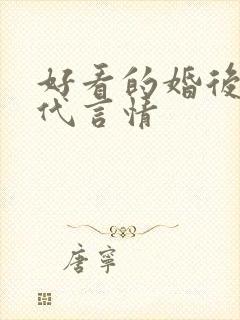 好看的婚後
代言情
唐寧